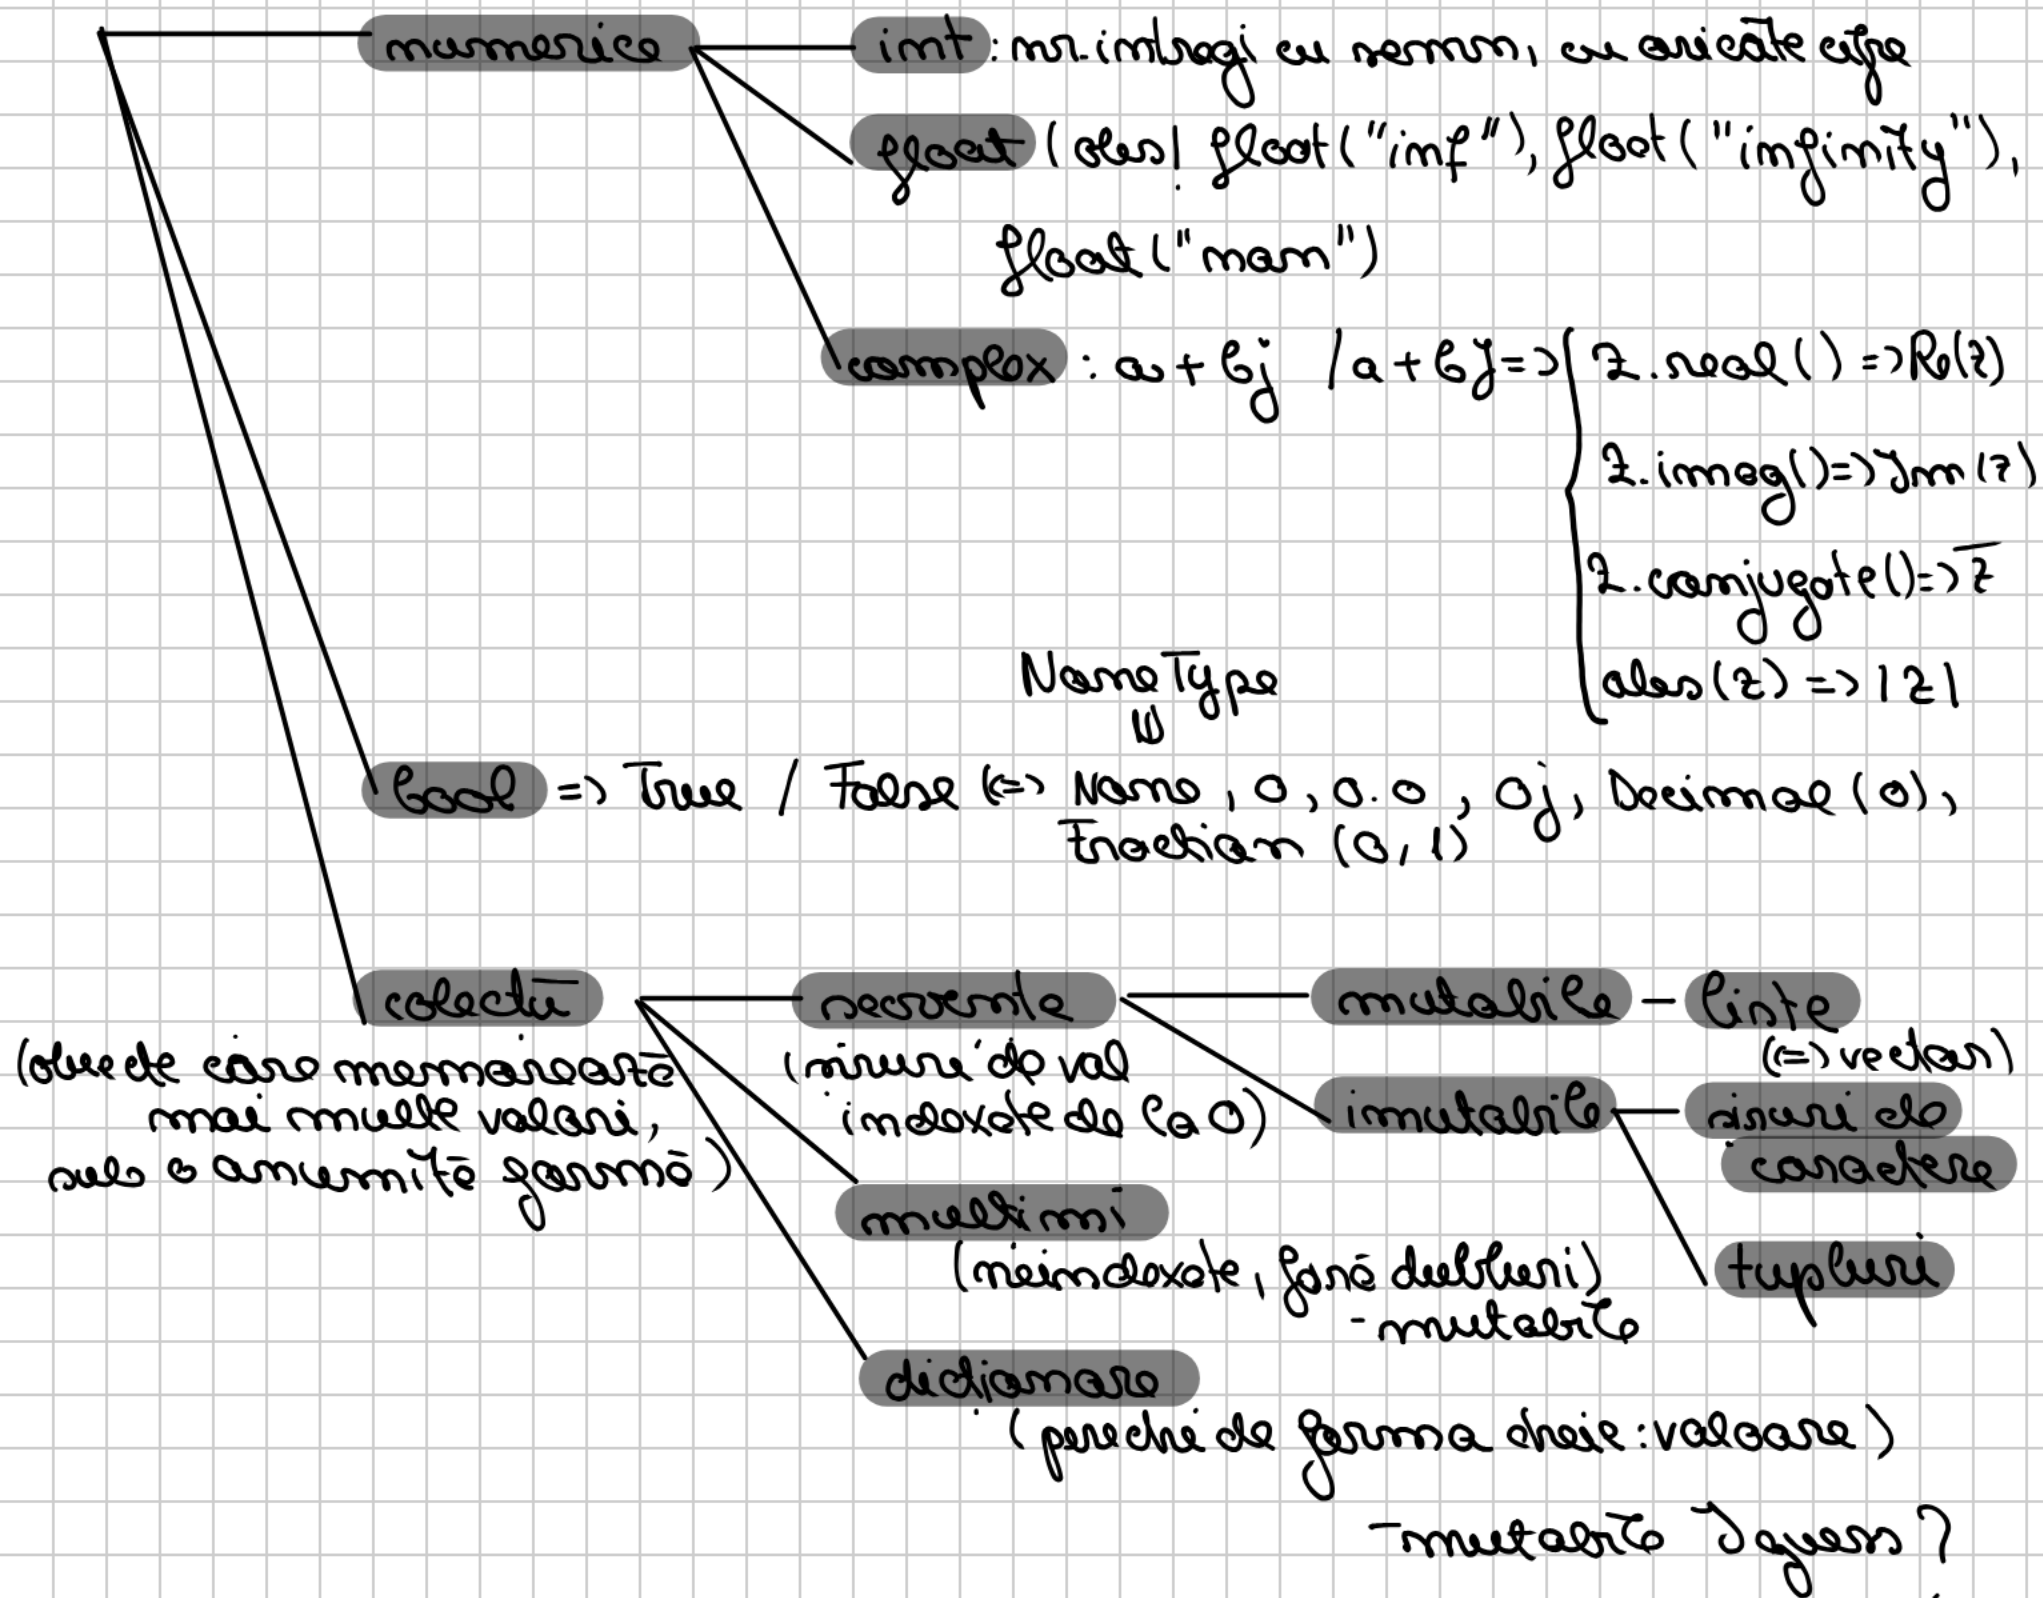 numerice
int : nr. intregi cu semn, cu oricâte cifre
float (obs! float("inf"), float("infinity"),
float("nan")
complex : a + bj / a + bJ => z.real() => Re(z)
z.imag() => Im(z)
z.conjugate() => z̅
abs(z) => |z|
NoneType
⇓
bool => True / False <=> None, 0, 0.0, 0j, Decimal(0),
Fraction (0, 1)
colecții
(obiecte care memorează
mai multe valori,
sub o anumită formă)
secvențe
(siruri de val
indexate de la 0)
mutabile - liste
(<=> vectori)
imutabile - siruri de
caractere
tupluri
multimi
(neindexate, fără dubluri)
- mutabile
dicționare
(perechi de forma cheie : valoare)
- mutabile I guess?